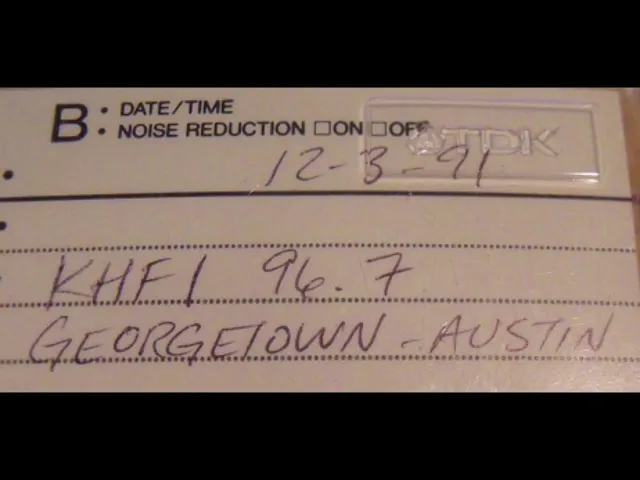 B • DATE/TIME
• NOISE REDUCTION ☐ON ☐OFF
TDK
12-3-91
KHFI 96.7
GEORGETOWN - AUSTIN